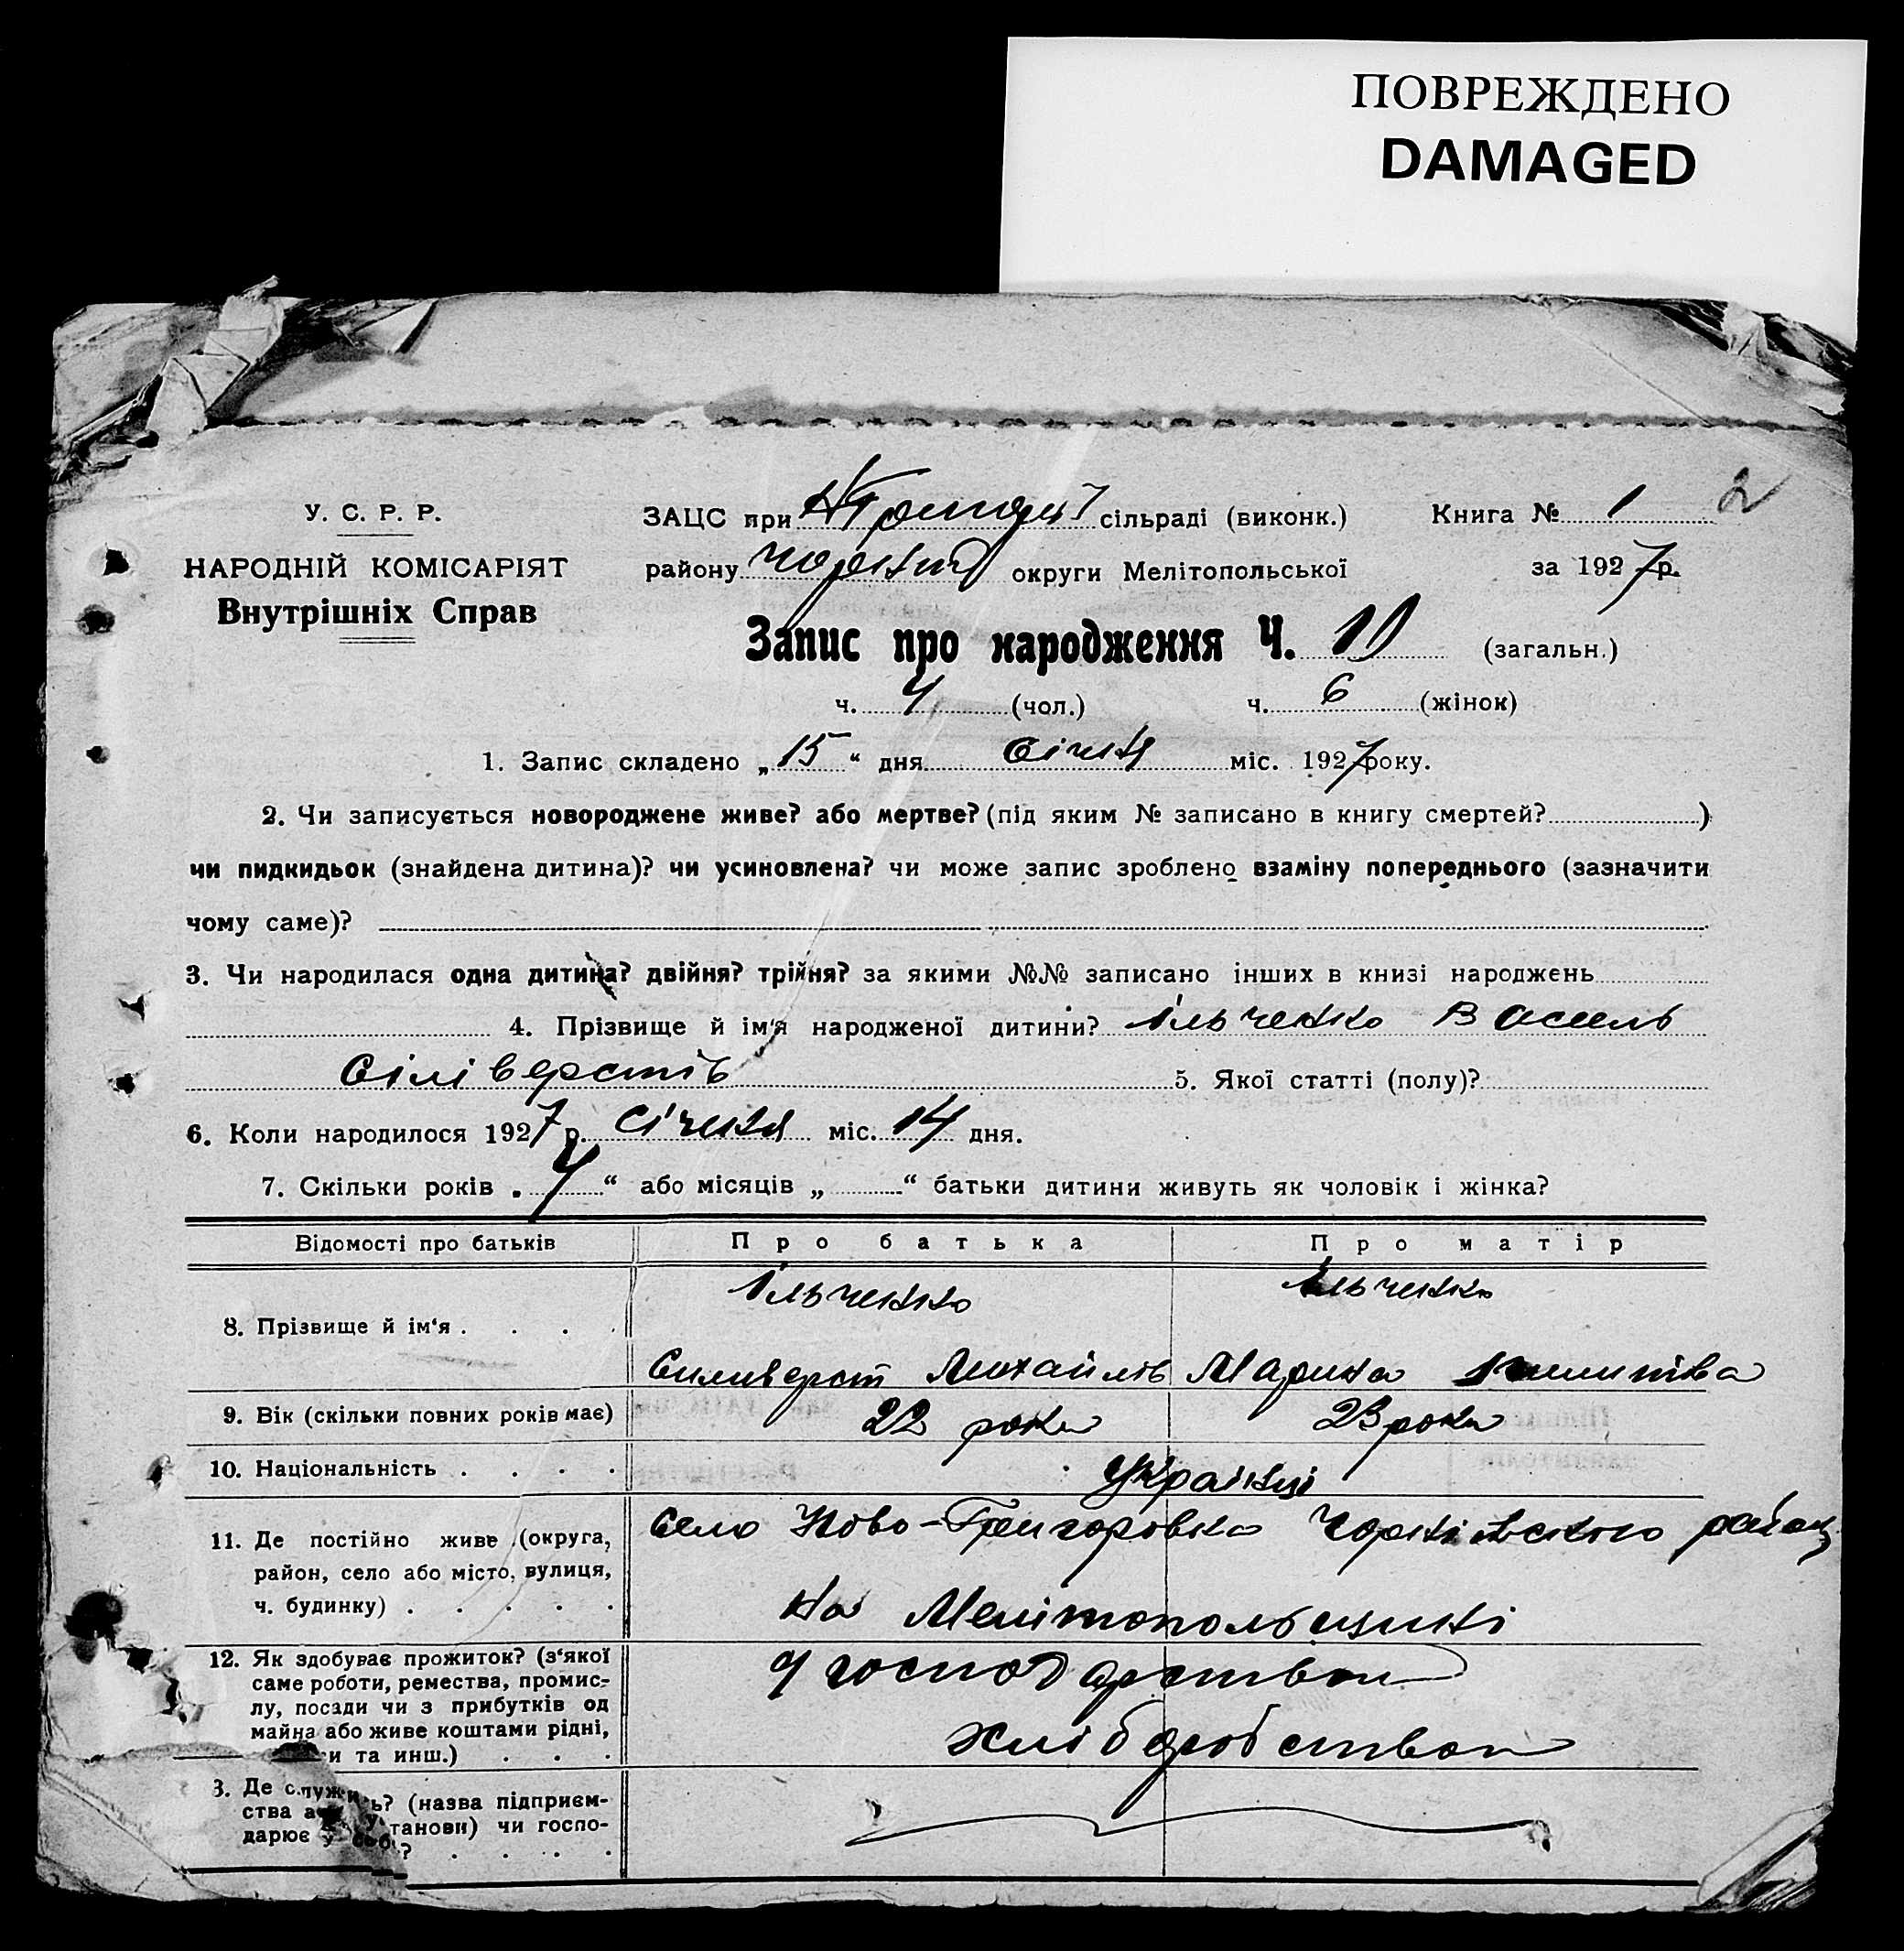 ПОВРЕЖДЕНО
DAMAGED
У. С. Р. Р.
НАРОДНІЙ КОМІСАРІЯТ
Внутрішніх Справ
ЗАЦС при сільраді (виконк.) Книга № 1 2
району округи Мелітопольської за 1927 р.
Запис про народження Ч. 10 (загальн.)
ч. 4 (чол.) ч. 6 (жінок)
1. Запис складено „15“ дня Січня міс. 1927 року.
2. Чи записується новороджене живе? або мертве? (під яким № записано в книгу смертей? )
чи пидкидьок (знайдена дитина)? чи усиновлена? чи може запис зроблено взаміну попереднього (зазначити
чому саме)?
3. Чи народилася одна дитина? двійня? трійня? за якими №№ записано інших в книзі народжень
4. Прізвище й ім'я народженої дитини? Ільченко Василь
Сіліверстів 5. Якої статті (полу)?
6. Коли народилося 1927 р. Січня міс. 14 дня.
7. Скільки років „4“ або місяців „ “ батьки дитини живуть як чоловік і жінка?
Відомості про батьків Про батька Про матір
Ільченко Ільченко
8. Прізвище й ім'я . . . .
Силиверст Михайлів Марина
9. Вік (скільки повних років має) 22 роки 23 роки
10. Національність . . . . Українці
11. Де постійно живе (округа, Село Ново-Григоровка Чернігівського району
район, село або місто, вулиця,
ч. будинку) . . . . . на Мелітопольщині
12. Як здобуває прожиток? (з'якої у господарством
саме роботи, ремества, промис-
лу, посади чи з прибутків од
майна або живе коштами рідні, хліборобством
и та инш.) . . .
3. Де служить? (назва підприєм-
ства а установи) чи госпо-
дарює у себе? . . . .